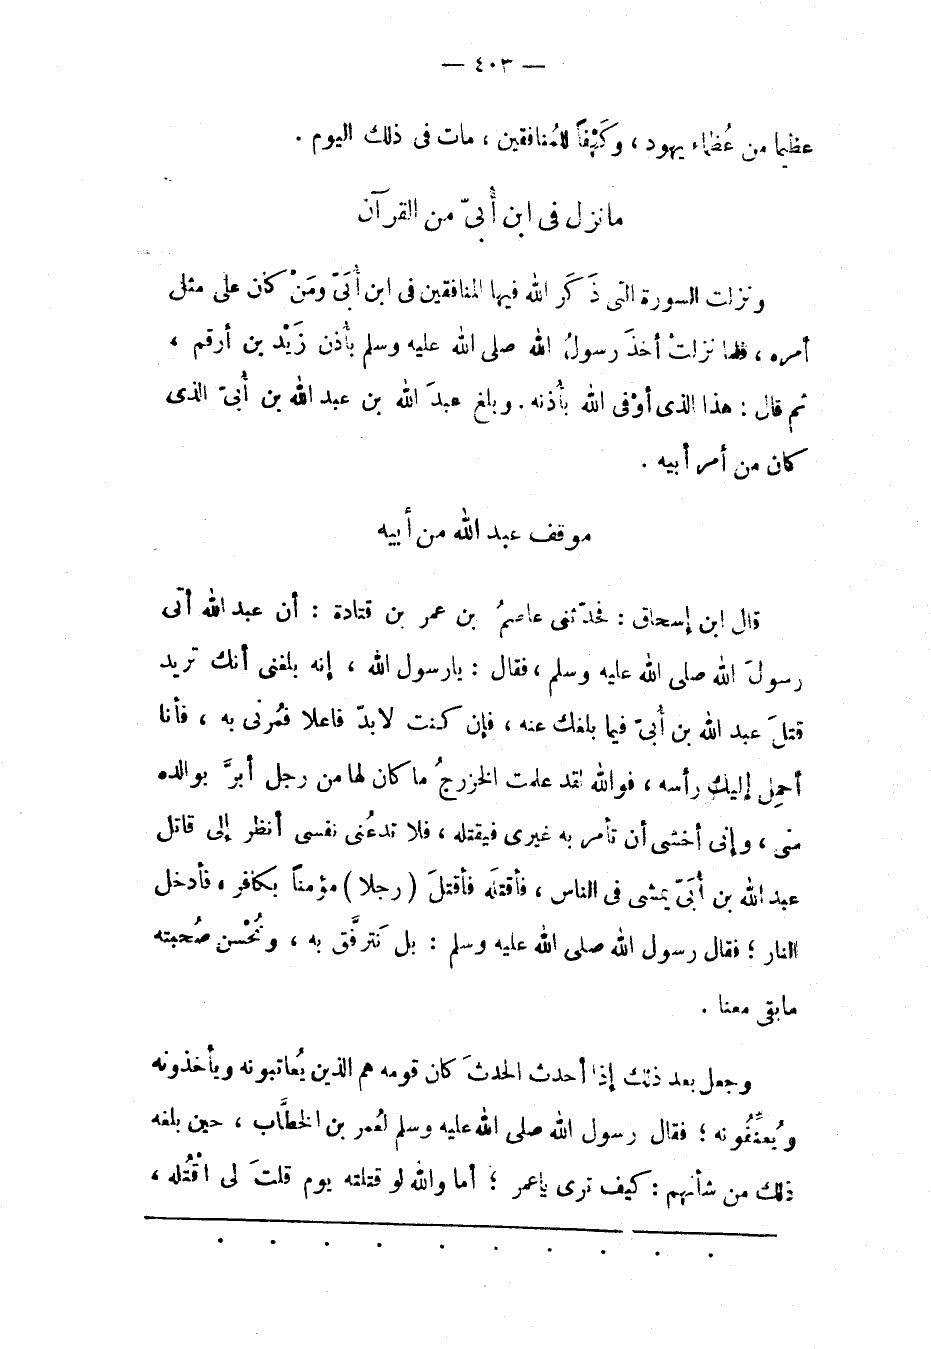 — ٤٠٣ —
عظيما من عُظماء يهود ، وكَهْفاً للمُنافقين ، مات فى ذلك اليوم .
مانزل فى ابن أُبىّ من القرآن
ونزلت السورة التى ذَكَر الله فيها المنافقين فى ابن أُبَىّ ومَنْ كان على مثل
أمره ، فلما نزلتْ أخذَ رسولُ الله صلى الله عليه وسلم بأُذن زَيْد بن أرقم ،
ثم قال : هذا الذى أوْفى الله بأُذنه . وبلغ عبدَ الله بن عبد الله بن أُبىّ الذى
كان من أمر أبيه .
موقف عبد الله من أبيه
قال ابن إسحاق : فحدّثنى عاصمُ بن عمر بن قتادة : أن عبد الله أتى
رسولَ الله صلى الله عليه وسلم ، فقال : يارسول الله ، إنه بلغنى أنك تريد
قتلَ عبد الله بن أُبىّ فيما بلغك عنه ، فإن كنت لابدّ فاعلا فمُرنى به ، فأنا
أحمِل إليك رأسه ، فوالله لقد علمت الخزرجُ ما كان لها من رجل أبرَّ بوالده
منى ، وإنى أخشى أن تأمر به غيرى فيقتله ، فلا تدعُنى نفسى أنظر إلى قاتل
عبد الله بن أُبَىّ يمشى فى الناس ، فأقتلَه فأقتلَ ( رجلا ) مؤمناً بكافر ، فأدخل
النار ؛ فقال رسول الله صلى الله عليه وسلم : بل نَترفَّق به ، ونُحْسن صُحبته
مابقى معنا .
وجعل بعد ذلك إذا أحدث الحدثَ كان قومه هم الذين يُعاتبونه ويأخذونه
ويُعنِّفُونه ؛ فقال رسول الله صلى الله عليه وسلم لعُمر بن الخطَّاب ، حين بلغه
ذلك من شأنهم : كيف ترى ياعمر ؛ أما والله لو قتلته يوم قلتَ لى اقْتُله ،